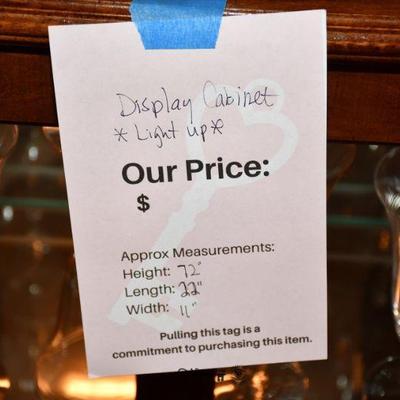 Display Cabinet
*Light up*
Our Price:
$
Approx Measurements:
Height: 72"
Length: 22"
Width: 11"
Pulling this tag is a
commitment to purchasing this item.